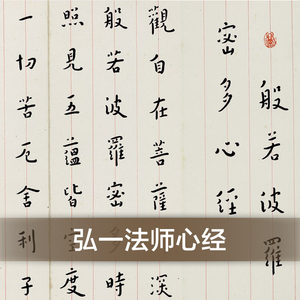 般若波羅
密多心經
觀自在菩薩深
般若波羅密多時
照見五蘊皆空度
一切苦厄舍利子
弘一法师心经